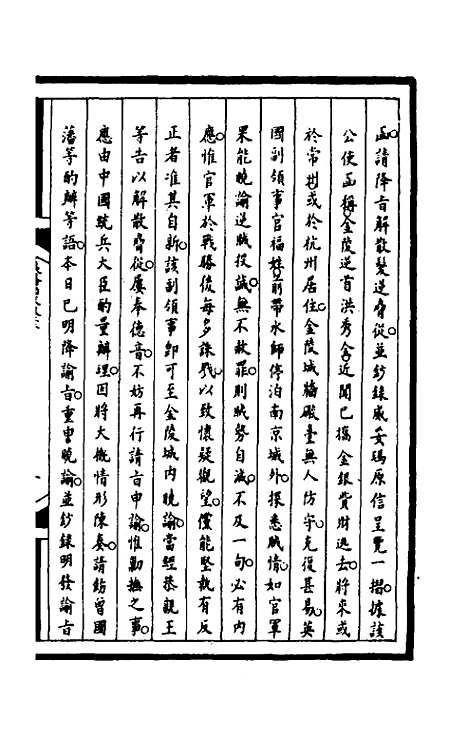 函請降旨解散髮逆脅從並鈔錄威妥瑪原信呈覽一摺據該
公使函稱金陵逆首洪秀全近聞已攜金銀貨財逃去將來或
於常州或於杭州居住金陵城牆礮臺無人防守克復甚易英
國副領事官福禮賜前帶水師停泊南京城外探悉賊情如官軍
果能曉諭逆賊投誠無不赦罪則賊勢自減不及一旬必有內
應惟官軍於戰勝後每多誅戮以致懷疑觀望儻能堅執有反
正者准其自新該副領事即可至金陵城內曉諭當經恭親王
等告以解散脅從屢奉德音不妨再行請旨申諭惟勦撫之事
應由中國統兵大臣酌量辦理因將大概情形陳奏請飭曾國
藩等酌辦等語本日已明降諭旨重申曉諭並鈔錄明發諭旨